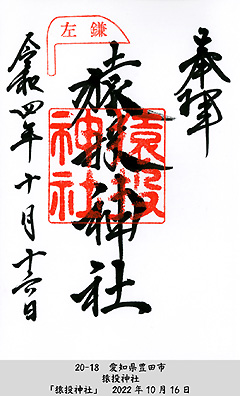 奉拝
左鎌
猿投神社
猿投神社
令和四年十月十六日
20-18 愛知県豊田市
猿投神社
「猿投神社」 2022年10月16日